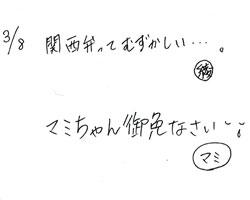 3/8 関西弁ってむずかしい…。
マミちゃん御免なさい〜。
マミ